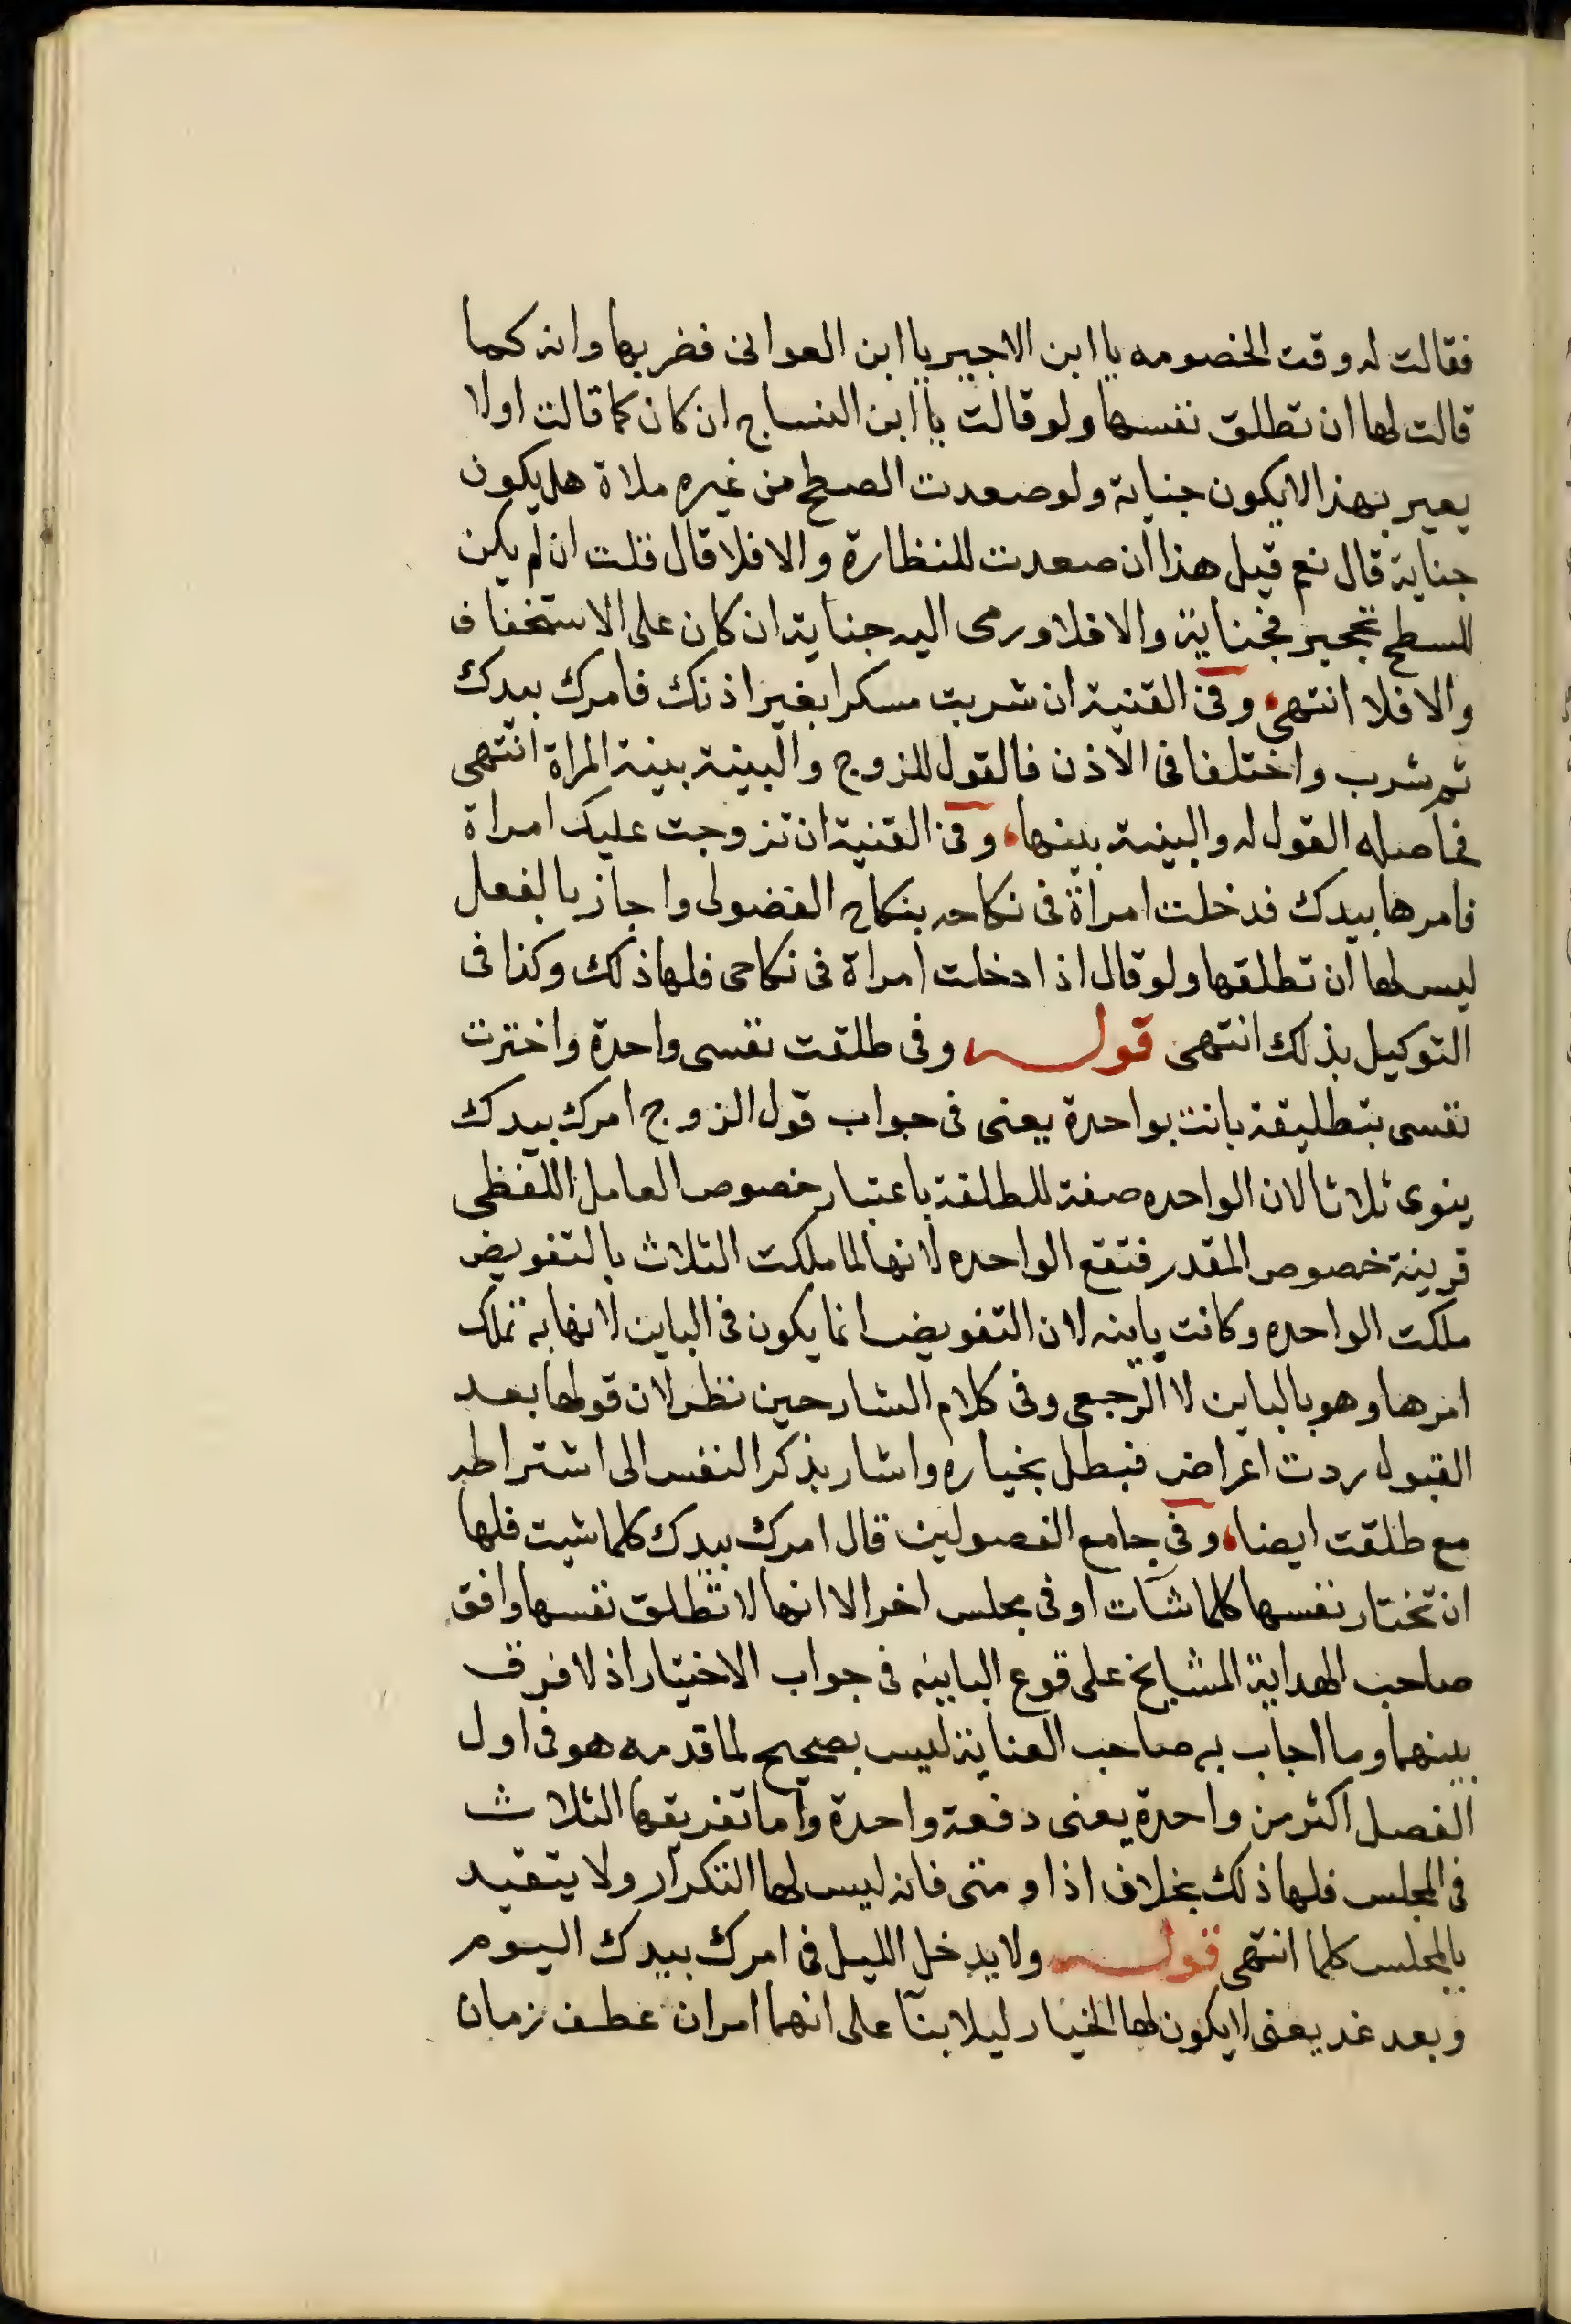 فقالت له وقت الخصومه يا ابن الاجير يا ابن العوانى فضربها وانه كما
قالت لها ان تطلق نفسها ولو قالت يا ابن النساج ان كان كما قالت اولا
يعير بهذا لايكون جناية ولو صعدت الصطح من غيره ملاة هل يكون
جناية قال نعم قيل هذا ان صعدت للنظارة والا فلا قال قلت ان لم يكن
للسطح تحجير فجناية والا فلا ورمى اليه جناية ان كان على الاستخفاف
والا فلا انتهى وفى القنية ان شربت مسكرا بغير اذنك فامرك بيدك
ثم شرب واختلفا فى الاذن فالقول للزوج والبينة بينة المراة انتهى
فحاصله القول له والبينة بينها وفى القنية ان تزوجت عليك امراة
فامرها بيدك فدخلت امراة فى نكاحه بنكاح الفضولى واجاز بالفعل
ليس لها ان تطلقها ولو قال اذا دخلت امراة فى نكاحى فلها ذلك وكذا فى
التوكيل بذلك انتهى قوله وفى طلقت نفسى واحدة واخترت
نفسى بتطليقة بانت بواحدة يعنى فى جواب قول الزوج امرك بيدك
ينوى ثلاثا لان الواحده صفة للطلقة باعتبار خصوص العامل اللفظى
قرينة خصوص المقدر فتقع الواحده لانها لما ملكت الثلاث بالتفويض
ملكت الواحده وكانت باينه لان التفويض انما يكون فى الباين لانها به تملك
امرها وهو بالباين لا الرجعى وفى كلام الشارحين نظر لان قولها بعد
القبول رددت اعراض فبطل بخياره واشار بذكر النفس الى اشتراطه
مع طلقت ايضا وفى جامع الفصولين قال امرك بيدك كلما شيت فلها
ان تختار نفسها كلما شات او فى مجلس اخر الا انها لا تطلق نفسها وافق
صاحب الهداية المشايخ على قوع الباينه فى جواب الاختيار اذ لا فرق
بينهما وما اجاب به صاحب العناية ليس بصحيح لما قدمه هو فى اول
الفصل اكثر من واحدة يعنى دفعة واحدة واما تفريقها الثلاث
فى المجلس فلها ذلك بخلاف اذا ومتى فانه ليس لها التكرار ولا يتقيد
بالمجلس كلما انتهى قوله ولا يدخل الليل فى امرك بيدك اليوم
وبعد غد يعنى لايكون لها الخيار ليلا بنآ على انهما امران عطف زمان